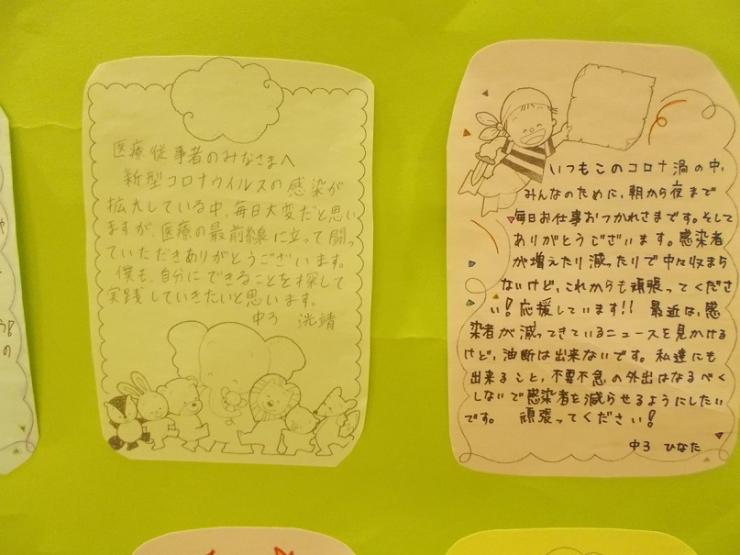 医療従事者のみなさまへ
新型コロナウイルスの感染が
拡大している中、毎日大変だと思い
ますが、医療の最前線に立って闘っ
ていただきありがとうございます。
僕も、自分にできることを探して
実践していきたいと思います。
中3 洸靖
いつもこのコロナ渦の中、
みんなのために、朝から夜まで
毎日お仕事おつかれさまです。そして
ありがとうございます。感染者
が増えたり減ったりで中々収まら
ないけど、これからも頑張ってくださ
い!応援しています!! 最近は、感
染者が減ってきているニュースを見かける
けど、油断は出来ないです。私達にも
出来ること、不要不急の外出はなるべく
しないで感染者を減らせるようにしたい
です。 頑張ってください!
中3 ひなた